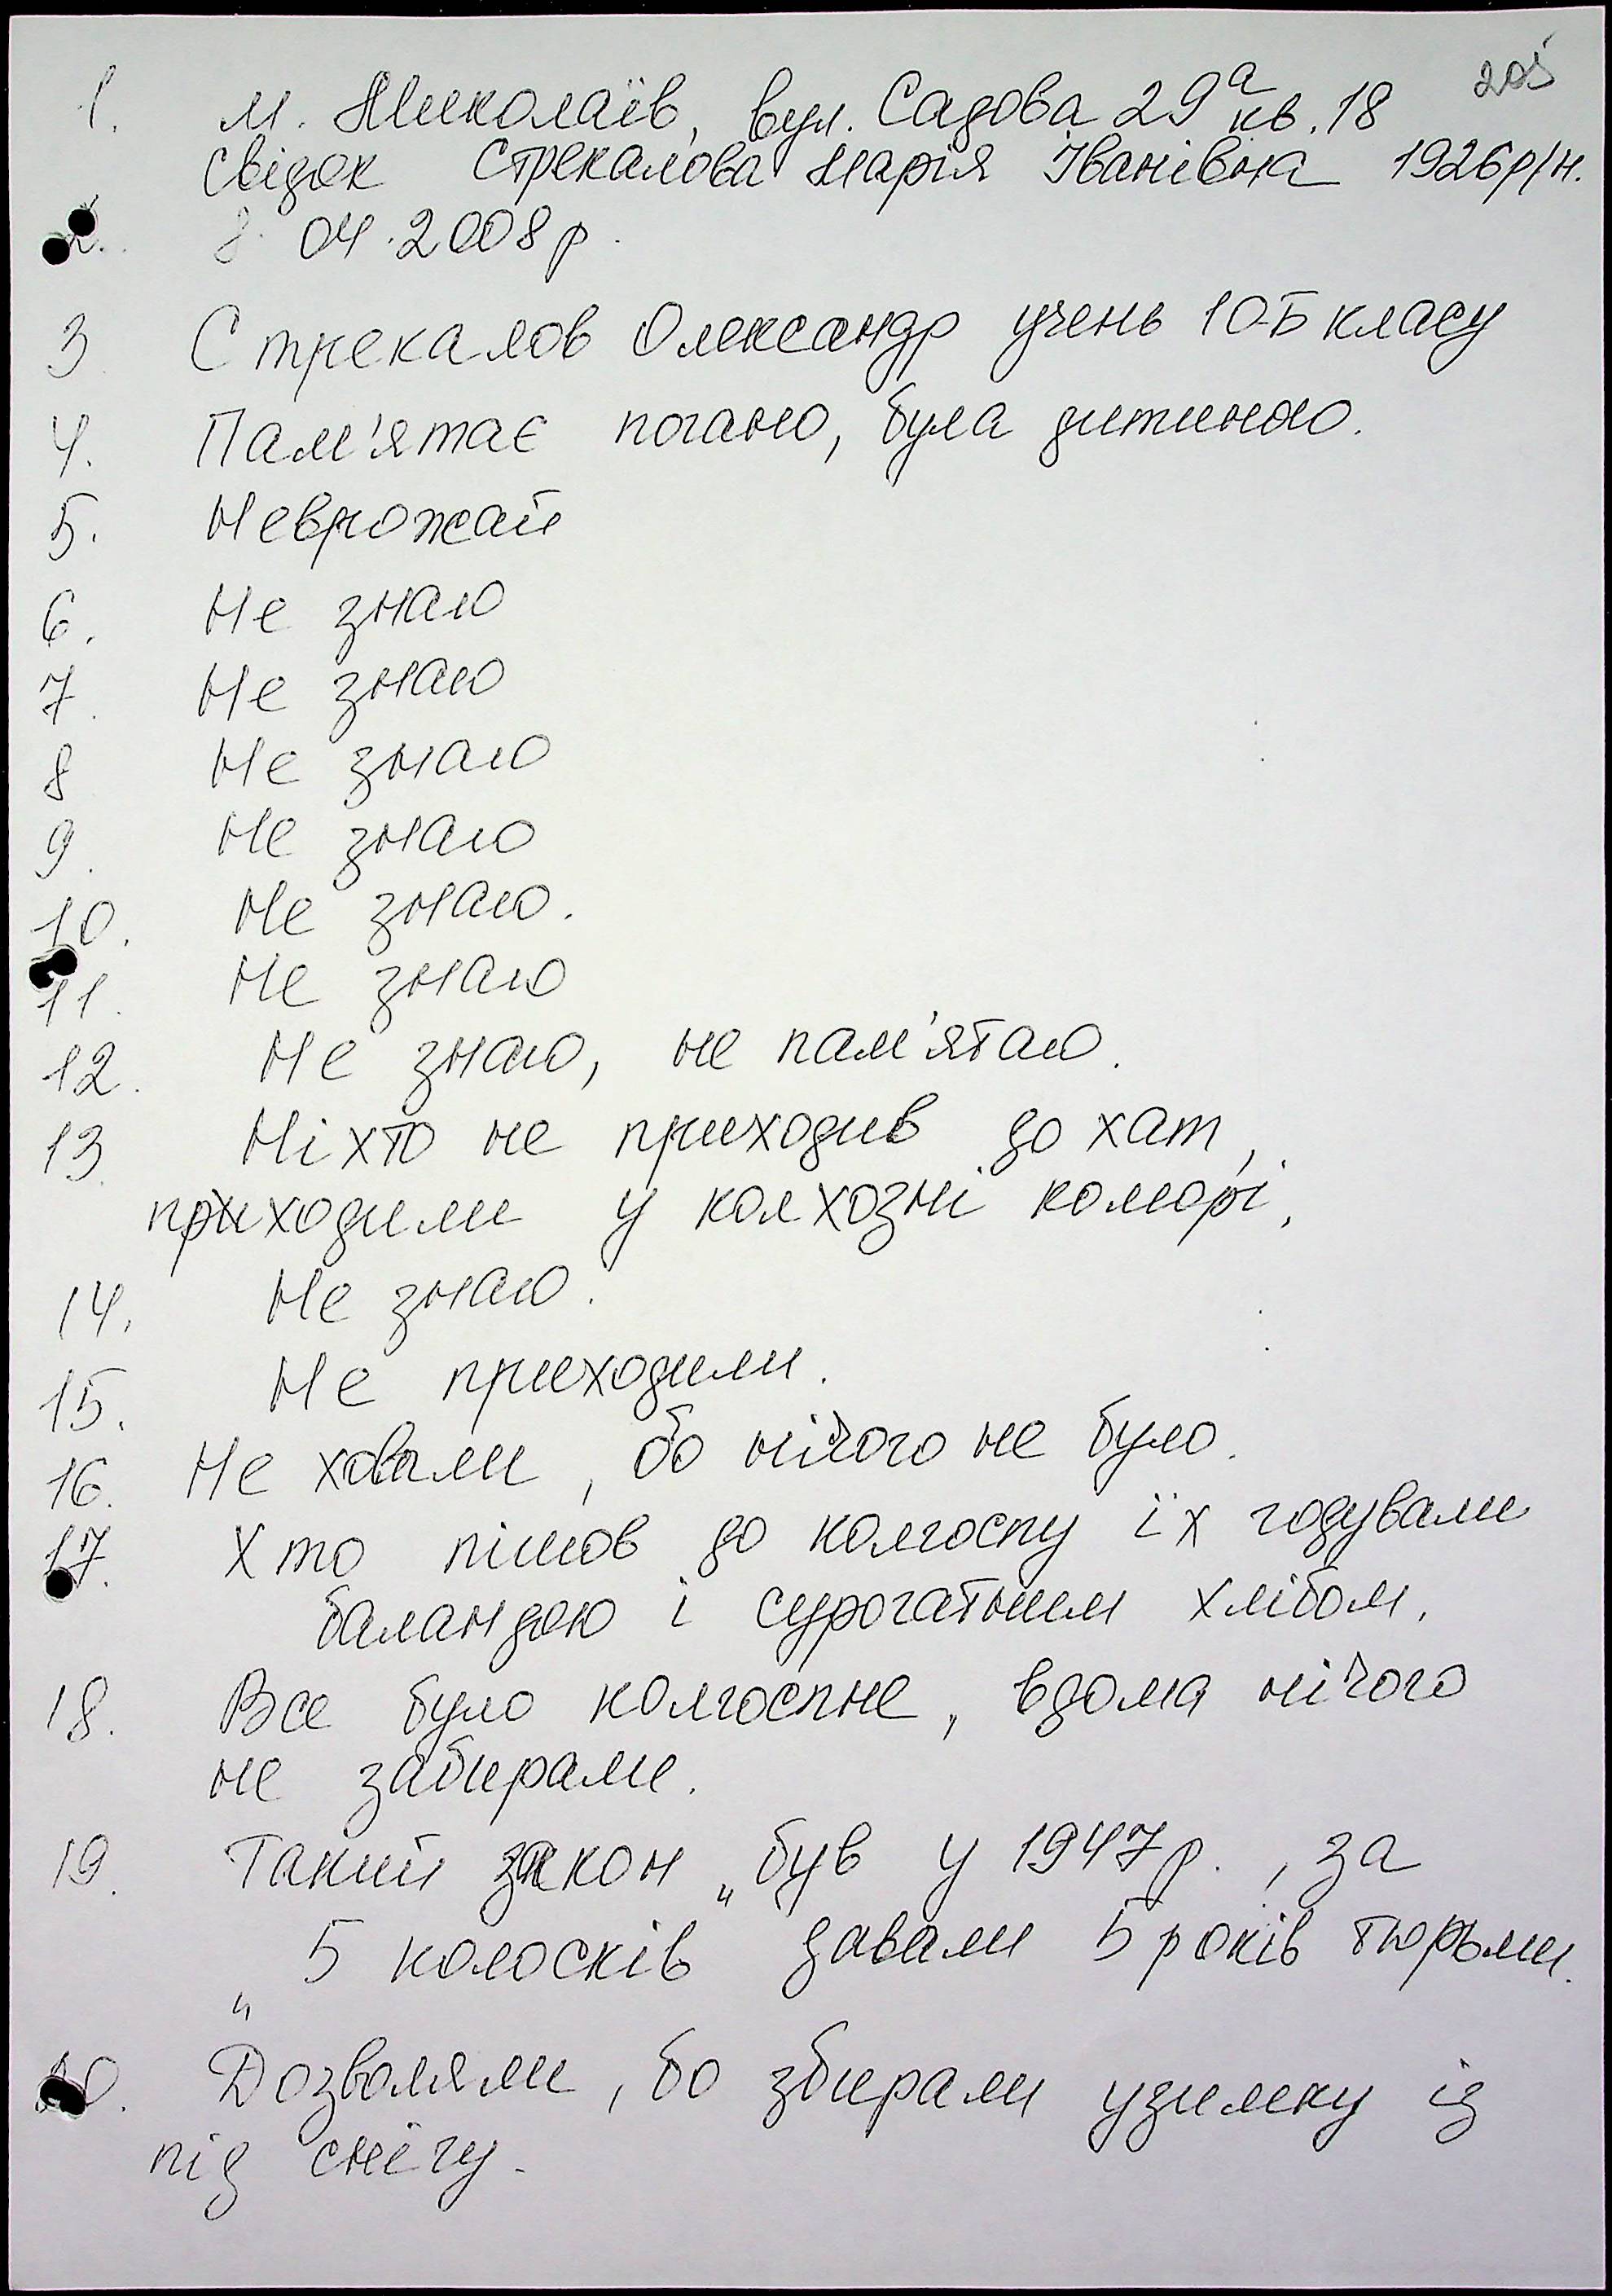 205
1. м. Миколаїв, вул. Садова 29а кв. 18
свідок Стрекалова Марія Іванівна 1926р/н.
2. 8. 04. 2008 р.
3 Стрекалов Олександр учень 10-Б класу
4. Пам'ятає погано, була дитиною.
5. Неврожай
6. Не знаю
7. Не знаю
8 Не знаю
9. Не знаю
10. Не знаю.
11. Не знаю
12. Не знаю, не пам'ятаю.
13. Ніхто не приходив до хат,
приходили у колхозні коморі.
14. Не знаю.
15. Не приходили.
16. Не ховали, бо нічого не було.
17. Хто пішов до колгоспу їх годували
баландою і сурогатним хлібом.
18. Все було колгоспне, вдома нічого
не забирали.
19. Такий закон „ був у 1947р., за
„ 5 колосків давали 5 років тюрьми.
20. Дозволяли, бо збирали узимку із
під снігу.